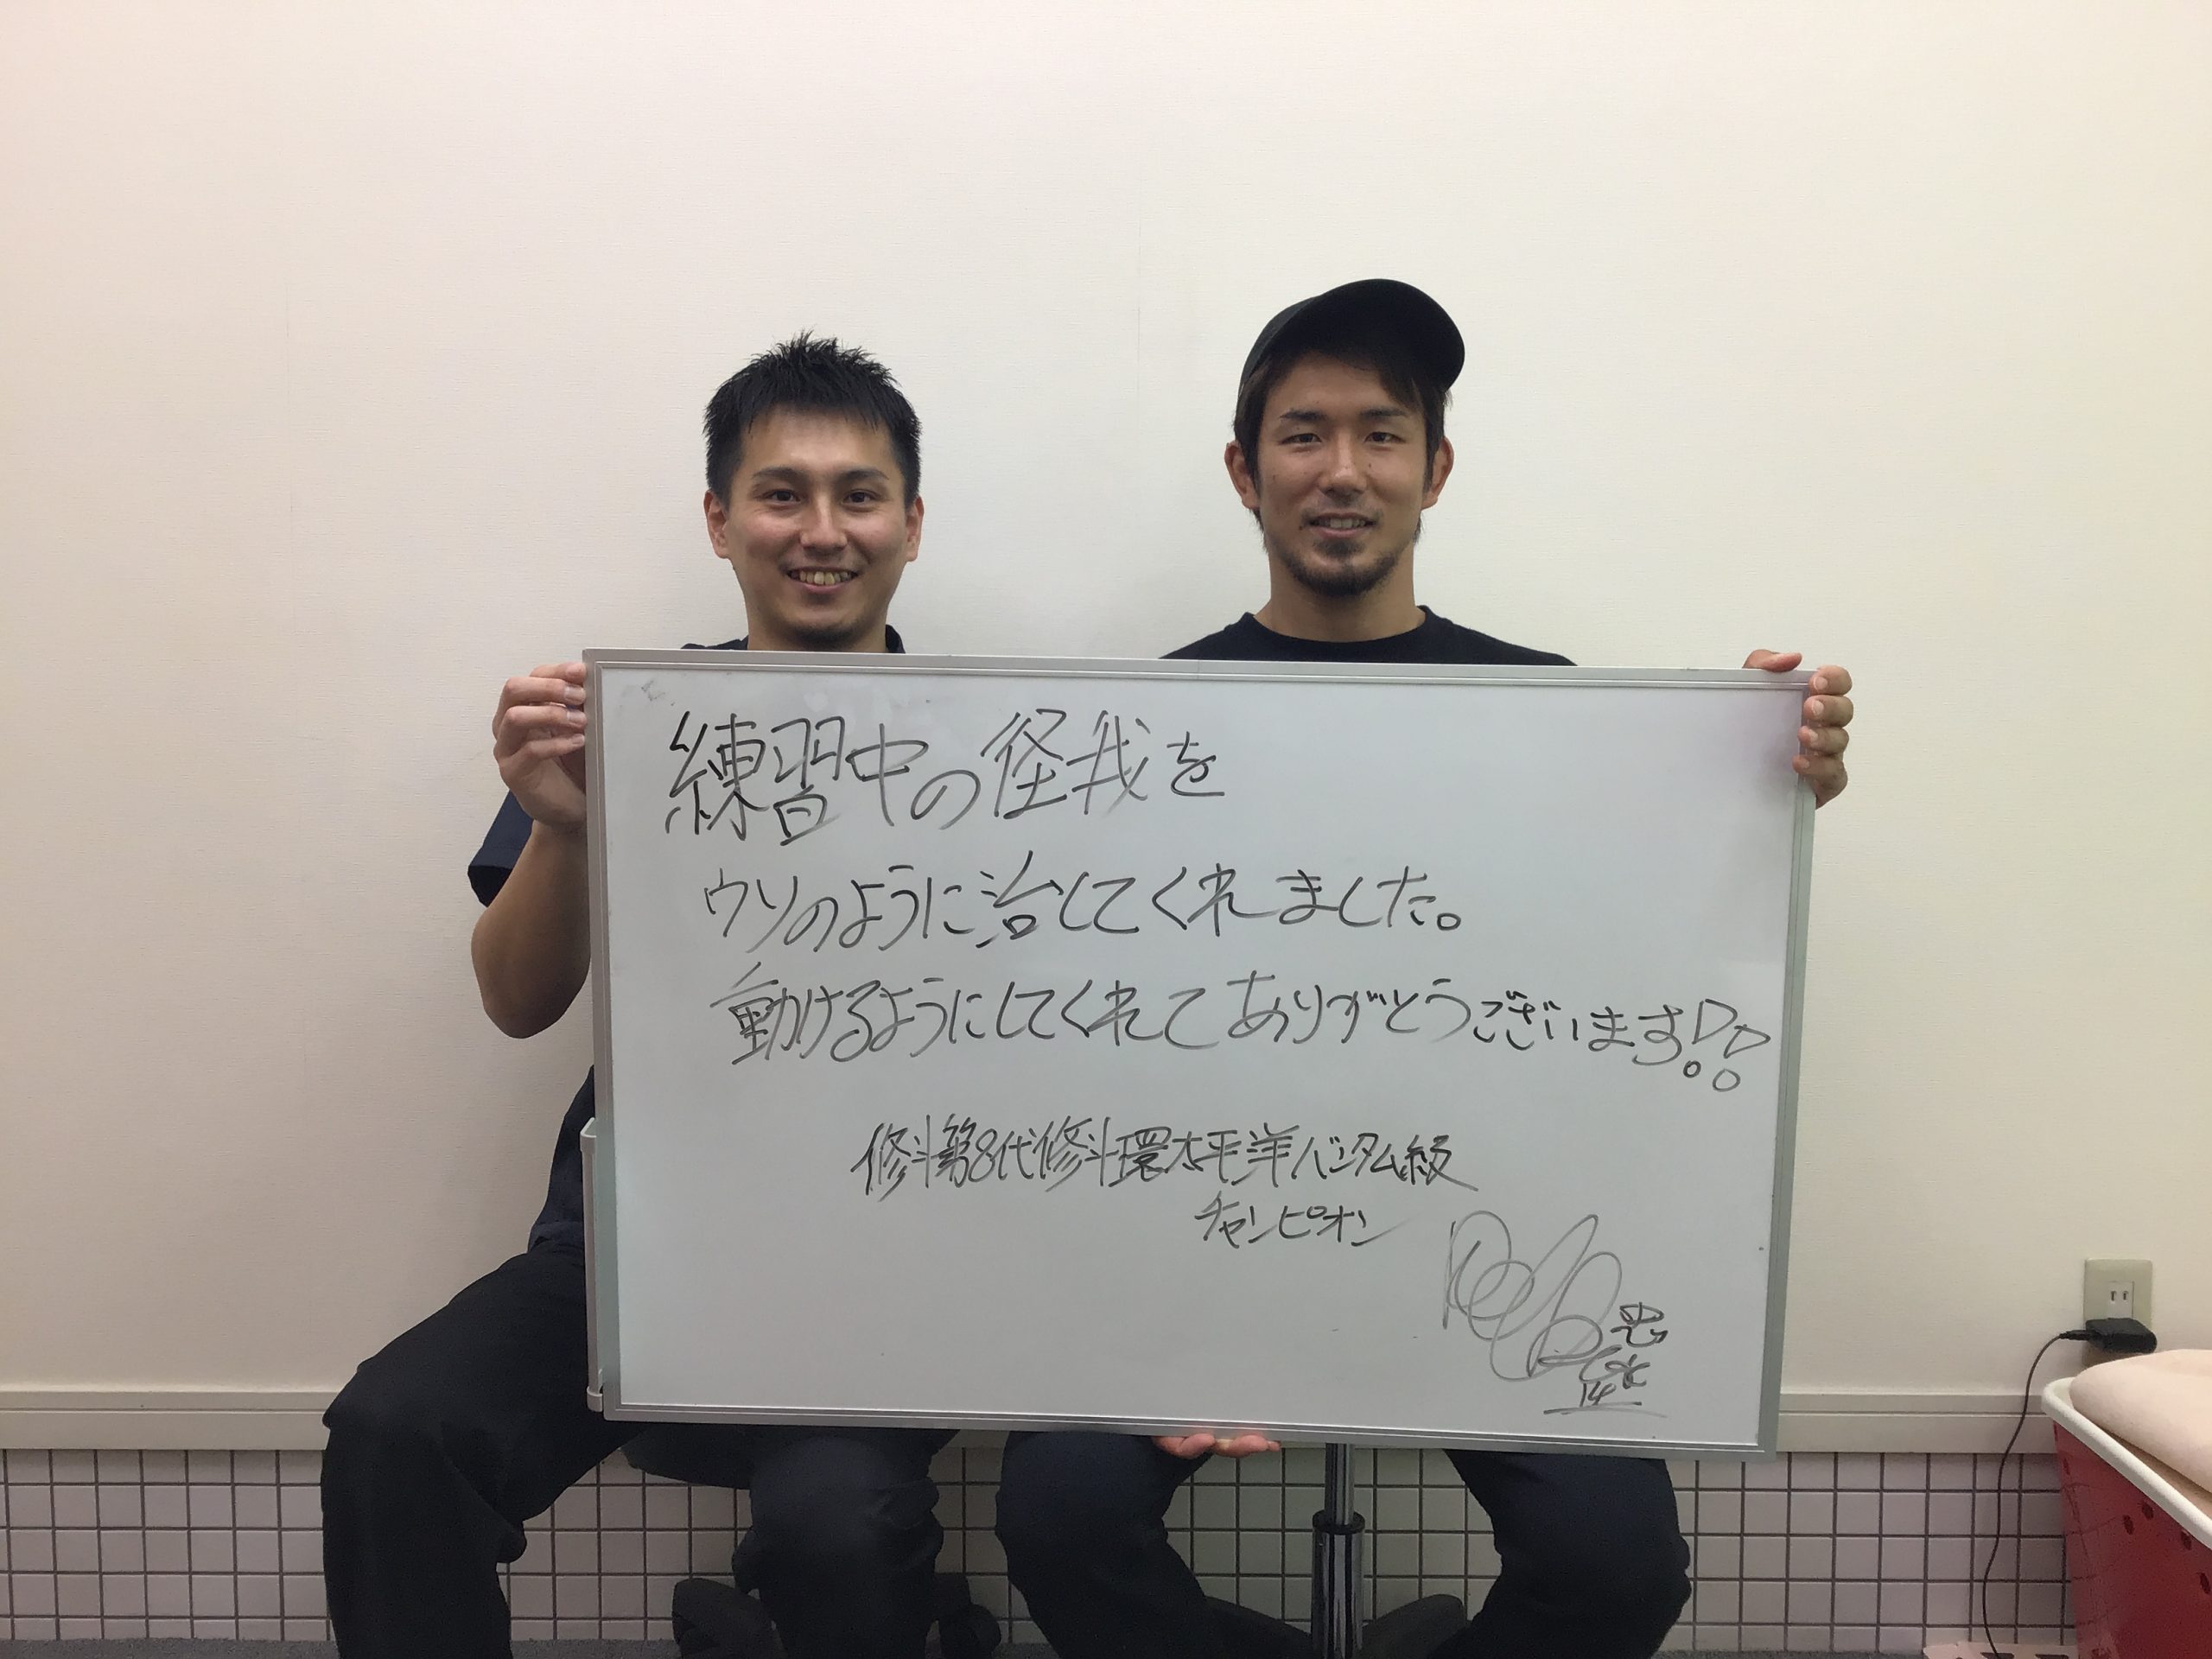 練習中の径我を
ウソのように治してくれました。
動けるようにしてくれてありがとうございます!!
修斗第8代修斗環太平洋バンタム級
チャンピオン